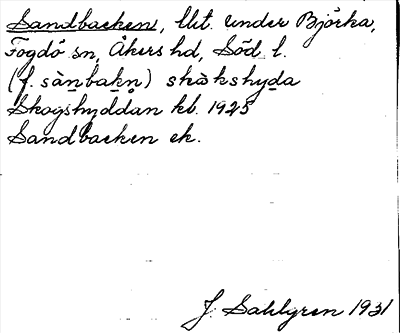 Sandbacken, lht. under Björka,
Fogdö sn, Åkers hd, Söd. l.
(f. sànbakn̥) skòkshyda
Skogshyddan kb. 1925
Sandbacken ek.
J. Sahlgren 1931